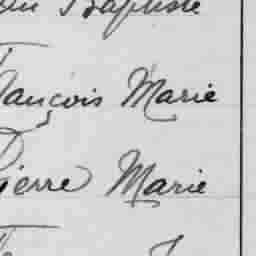 Baptiste
François Marie
Pierre Marie